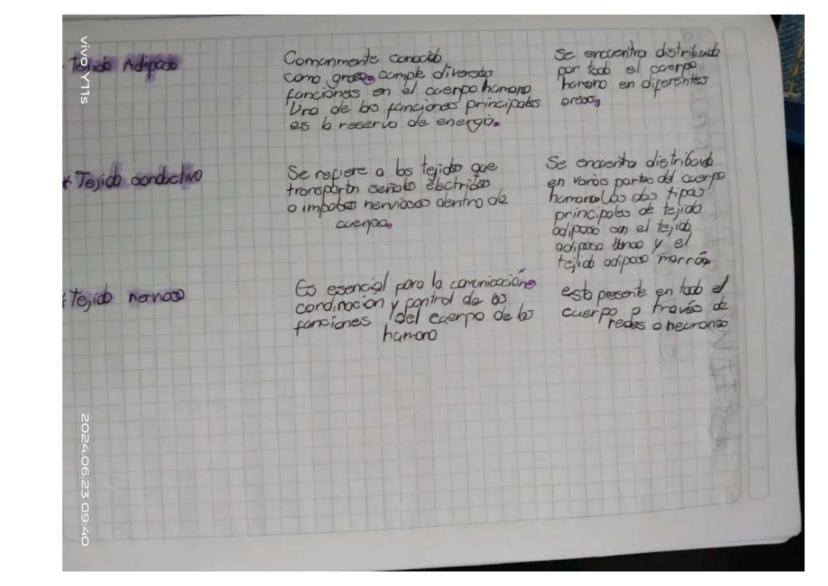 · Tejido Adiposo
Comonmente conocido
como grasa, cumple diversas
funciones en el cuerpo humano
Una de las funciones principales
es la reserva de energia.
Se encuentra distribuido
por todo el cuerpo
humano en diferentes
areas.
* Tejido conductivo
Se refiere a los tejidos que
transportan señales électricas
o impulsos nerviosos dentro de
cuerpo.
Se encuentra distribuido
en varias partes del cuerpo
humano los dos tipos
principales de tejido
adiposo son el tejido
adiposo blanco y el
tejido adiposo marrón
* Tejido nervioso
Es esencial para la comunicación
cordinacion y control de las
funciones del cuerpo de los
humano
esta presente en todo el
cuerpo a través de
redes o neuronas
vivo Y11s
2024.06.23 09:40